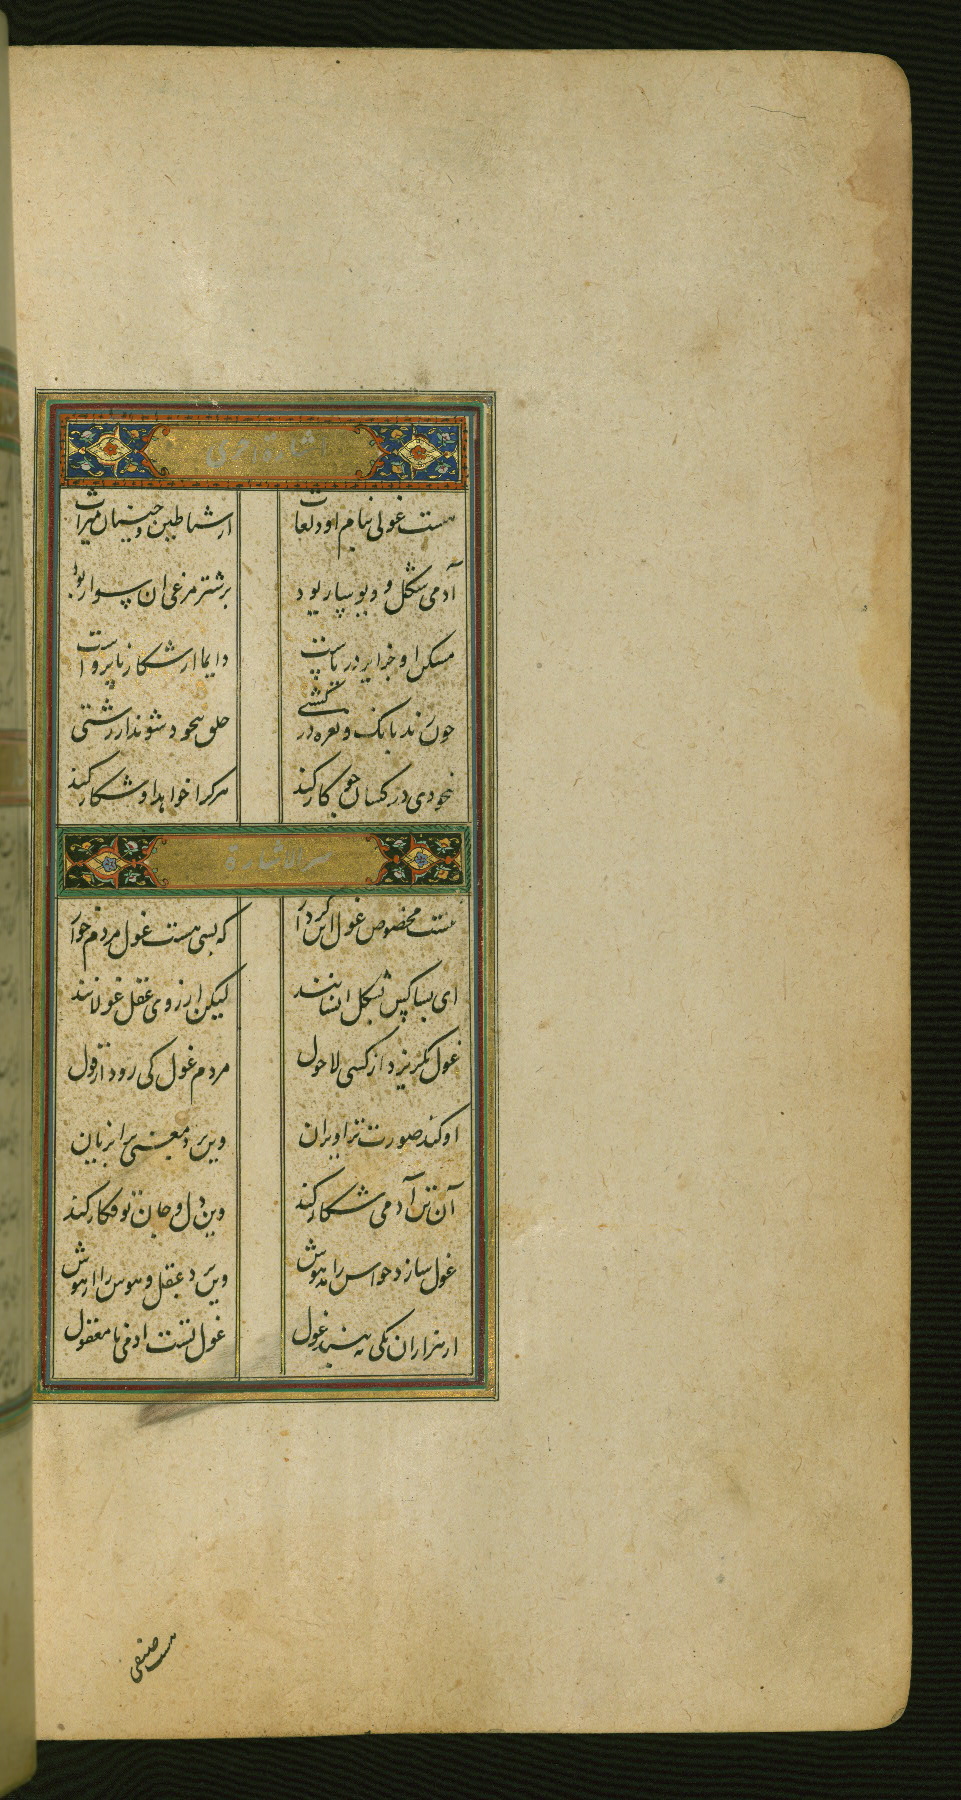 اشارة اخری
هست غولی بنام او دلهاث
از شیاطین و جنیان میراث
آدمی شکل و دیو سار بود
بر شتر مرغی آن سوار بود
مسکن او جزایر دریاست
دایما از شکار ناپرواست
چون زند بانک و نعره در کشتی
خلق بیخود شوند از زشتی
بیخودی در کسان چو کار کند
هر کرا خواهد او شکار کند
سر الاشارة
نیست مخصوص غول این کردار
که بسی هست غول مردم خوار
ای بسا کس بشکل انسانند
لیکن از روی عقل غولانند
غول بگریزد از کسی لاحول
مردم غول کی رود از قول
او کند صورت ترا ویران
وین برد معنی ترا بزیان
آن تن آدمی شکار کند
وین دل و جان تو فکار کند
غول سازد حواس را مدهوش
وین برد عقل و هوس را از هوش
از هزاران یکی نه بیند غول
غول تست ادمی نامعقول
هست صنفی